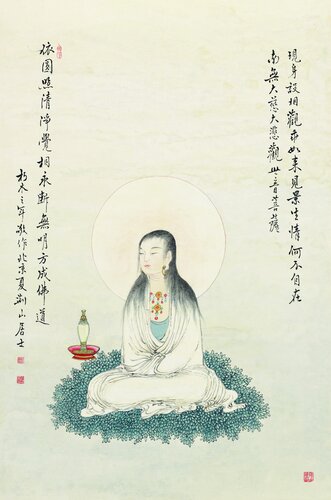 現身設相觀如來見景生情何不自在
南無大慈大悲觀世音菩薩
依圓照清淨覺相永斷無明方成佛道
朽木之年敬作北京夏荆山居士